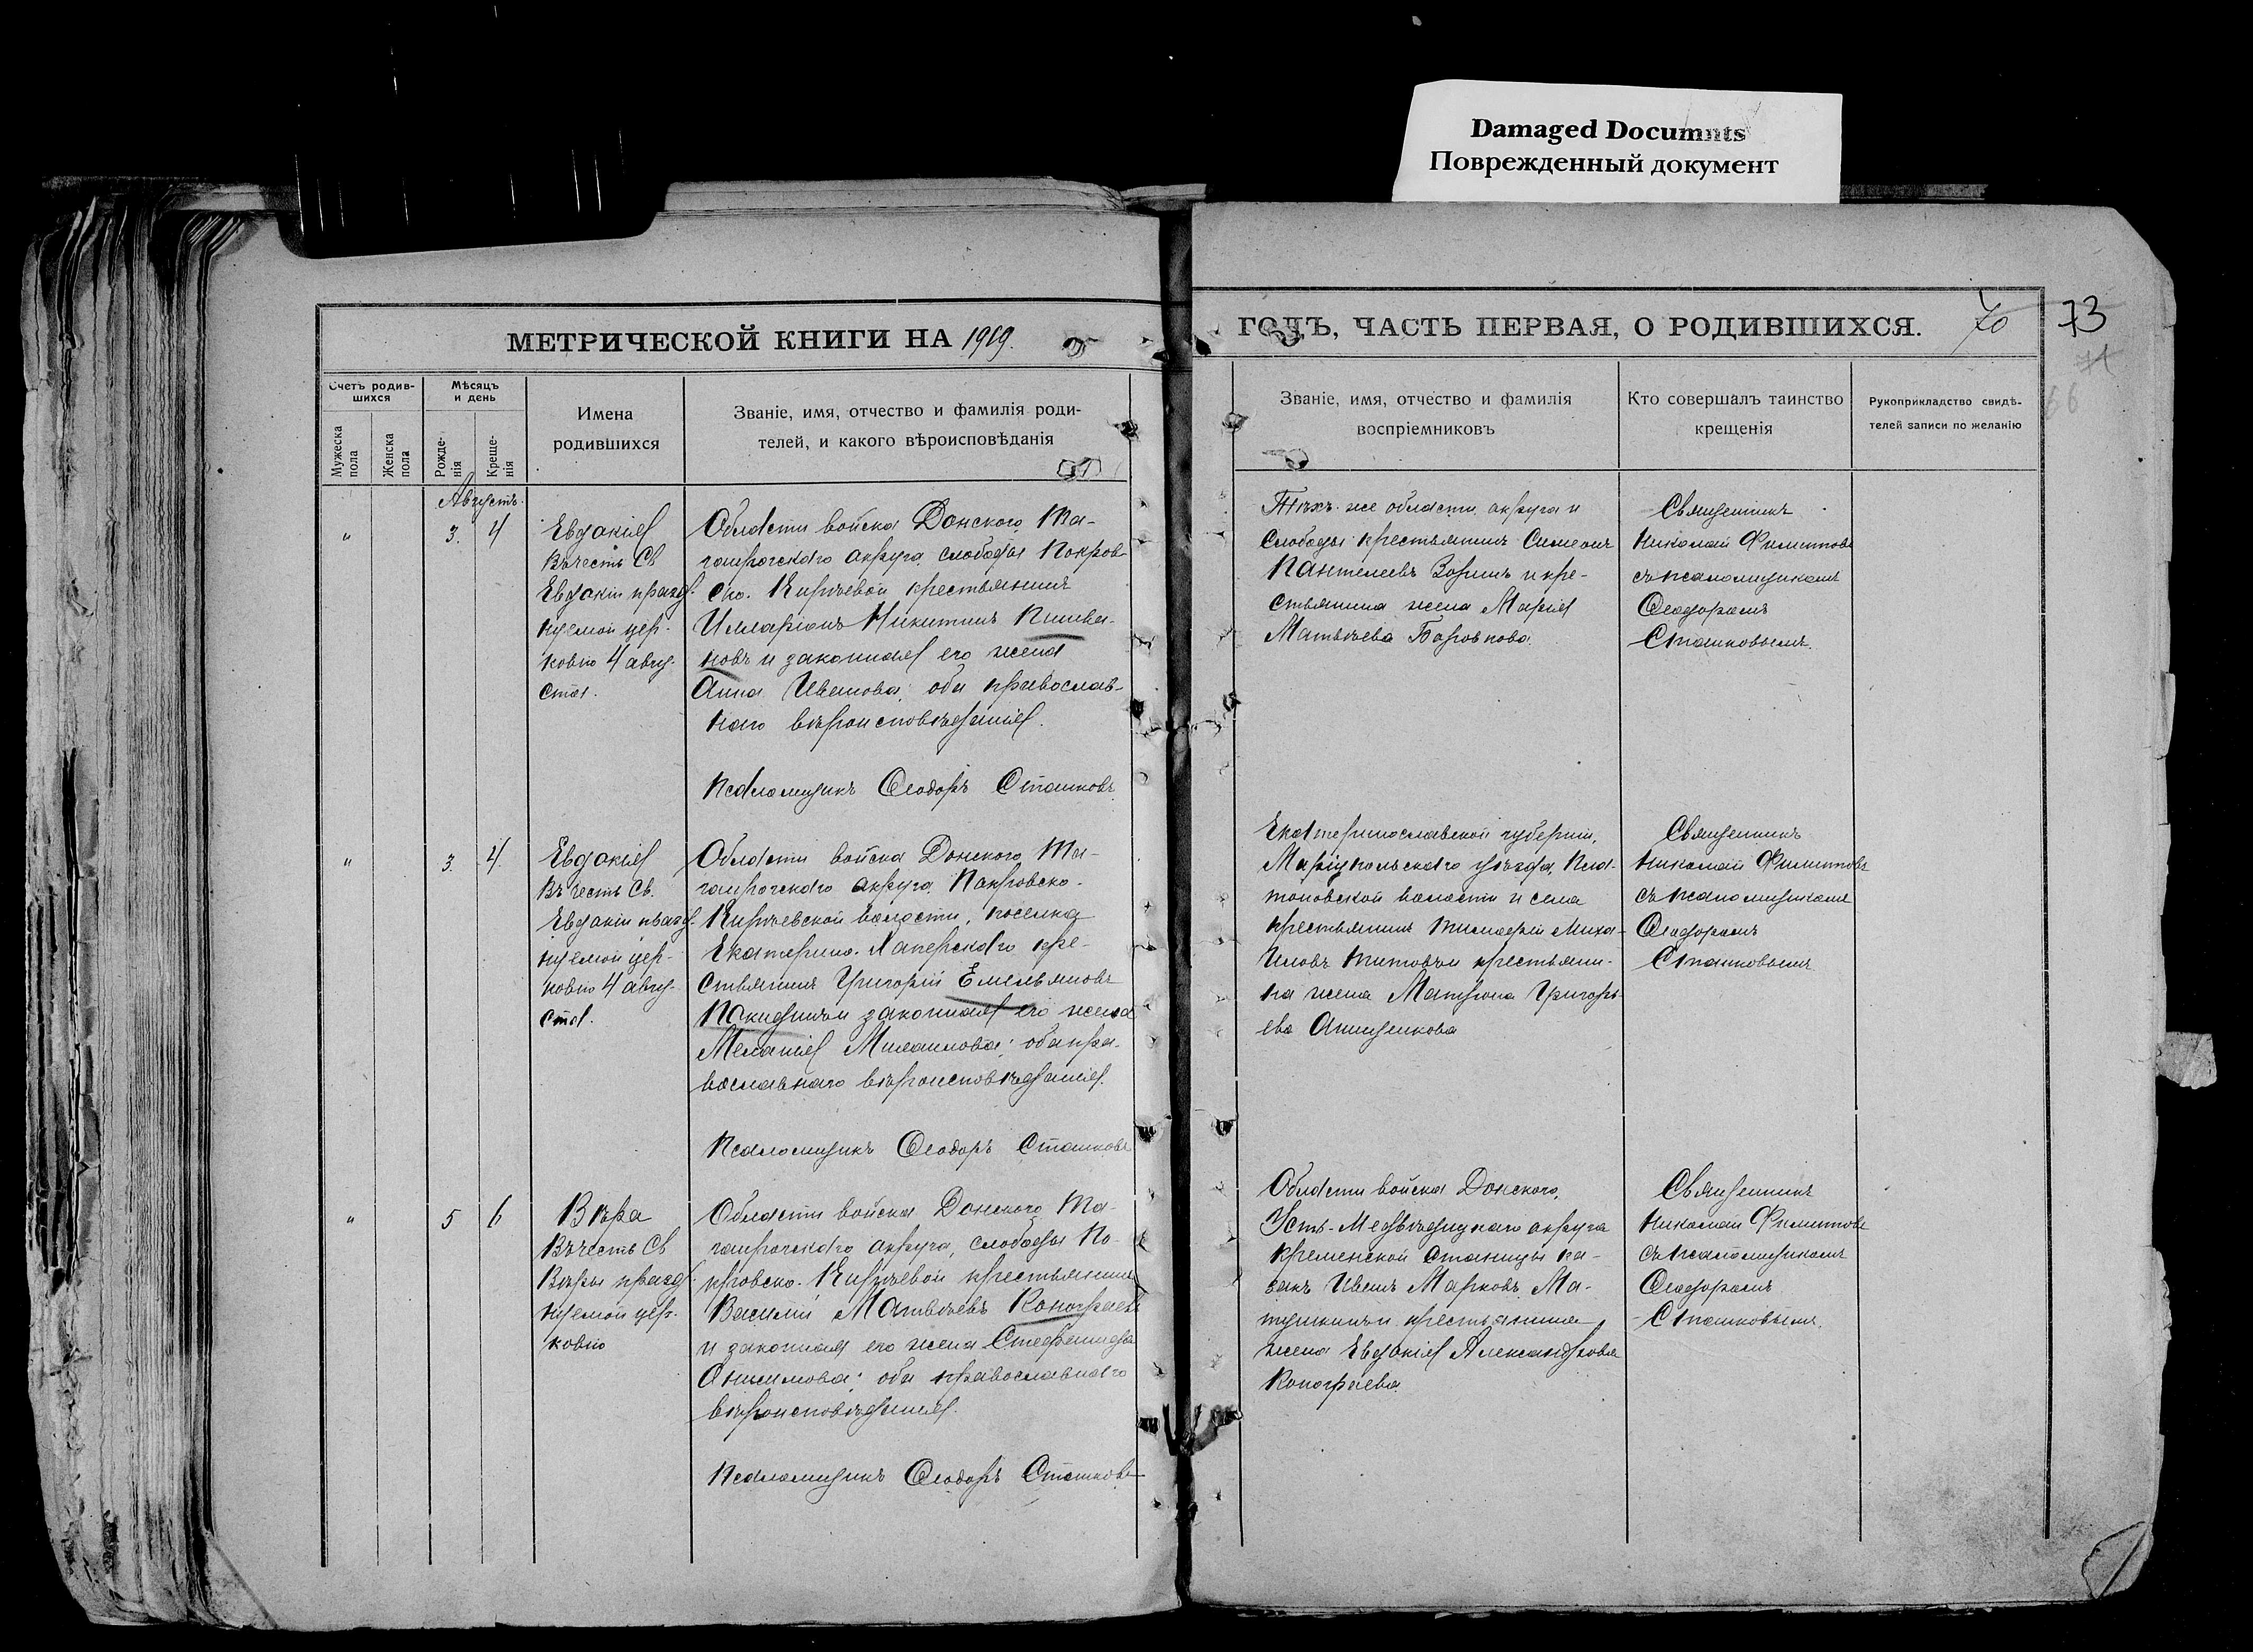 Damaged Documnts
Поврежденный документ
МЕТРИЧЕСКОЙ КНИГИ НА 1919.
ГОДЪ, ЧАСТЬ ПЕРВАЯ, О РОДИВШИХСЯ.
70
73
71
66
Счетъ родив-
шихся
Мужеска
пола
Женска
пола
Мѣсяцъ
и день
Рожде-
нія
Креще-
нія
Имена
родившихся
Званіе, имя, отчество и фамилія роди-
телей, и какого вѣроисповѣданія
Званіе, имя, отчество и фамилія
воспріемниковъ
Кто совершалъ таинство
крещенія
Рукоприкладство свидѣ-
телей записи по желанію
Августъ.
"
3.
4
Евдокія
Въ честь Св
Евдокіи празд-
нуемой цер-
ковію 4 авгу-
ста.
Области войска Донского Та-
ганрогскаго округа слободы Покров-
ско-Кирѣевой крестьянинъ
Илларіонъ Никитинъ
и законная его жена
Анна Иванова; оба православ-
наго вѣроисповѣданія.
Псаломщикъ Ѳеодоръ Сташковъ
Тѣхъ же области округа и
слободы крестьянинъ Симеонъ
Пантелеевъ Зоринъ и кре-
стьянина жена Марія
Матвѣева
Священникъ
Николай Филиповъ
съ псаломщикомъ
Ѳеодоромъ
Сташковымъ.
"
3.
4.
Евдокія
Въ честь Св.
Евдокіи празд-
нуемой цер-
ковію 4 авгу-
ста.
Области войска Донского Та-
ганрогскаго округа Покровско-
Кирѣевской волости, поселка
Екатерино-Хаперскаго кре-
стьянинъ Григорій Емельяновъ
и законная его жена
Меланія Михаилова; оба пра-
вославнаго вѣроисповѣданія.
Псаломщикъ Ѳеодоръ Сташковъ
Екатеринославской губерніи,
Маріупольскаго уѣзда, Пла-
тоновской волости и села
крестьянинъ Тимофей Миха-
иловъ Титовъ и крестьяни-
на жена Матрона Григорь-
ева Анищенкова
Священникъ
Николай Филиповъ
съ псаломщикомъ
Ѳеодоромъ
Сташковымъ
"
5
6
Вѣра
Въ честь Св
Вѣры празд-
нуемой цер-
ковію
Области войска Донского Та-
ганрогскаго округа, слободы По-
кровско-Кирѣевой крестьянинъ
Василій Матвѣевъ Конограевъ
и законная его жена Стефанида
Анисимова; оба православнаго
вѣроисповѣданія.
Псаломщикъ Ѳеодоръ Сташковъ
Области войска Донского,
Усть-Медвѣдицкаго округа
Кременской станицы ка-
закъ Иванъ Марковъ Ма-
тушкинъ и крестьянина
жена Евдокія Александрова
Конограева.
Священникъ
Николай Филиповъ
съ псаломщикомъ
Ѳеодоромъ
Сташковымъ.